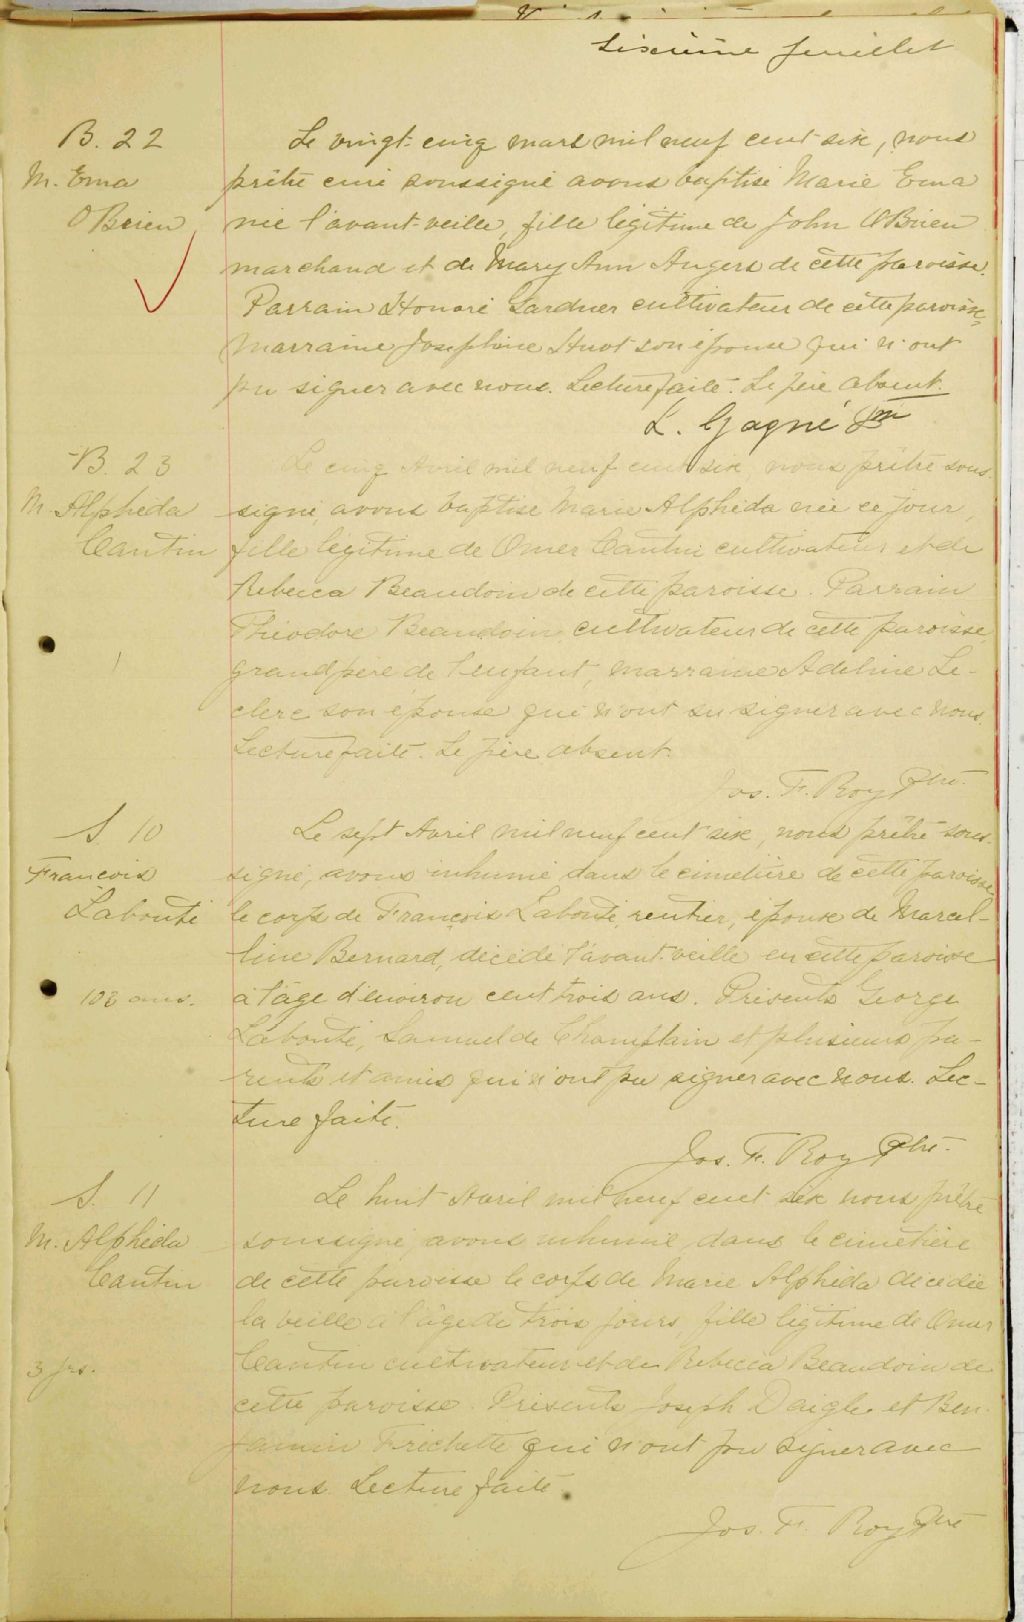 Sixième feuillet
B. 22
M. Ema
O'Brien
Le vingt-cinq mars mil neuf cent six, nous
prêtre curé soussigné avons baptisé Marie Ema
née l'avant-veille, fille légitime de John O'Brien
marchand et de Mary Ann Angers de cette paroisse.
Parrain Honoré Gardner cultivateur de cette paroisse,
marraine Josephine Huot son épouse qui n'ont
pu signer avec nous. Lecture faite. Le père absent.
L. Gagné Ptre
B. 23
M. Alphéda
Cantin
Le cinq Avril mil neuf cent six, nous prêtre sous-
signé, avons baptisé Marie Alphéda née ce jour,
fille legitime de Omer Cantin cultivateur et de
Rebecca Beaudoin de cette paroisse. Parrain
Théodore Beaudoin cultivateur de cette paroisse,
grandpère de l'enfant, marraine Adeline Le-
clerc son épouse qui n'ont su signer avec nous.
Lecture faite. Le père absent.
Jos. F. Roy Ptre.
S. 10
François
Labonté
103 ans.
Le sept Avril mil neuf cent six, nous prêtre sous-
signé, avons inhumé dans le cimetière de cette paroisse
le corps de François Labonté, rentier, époux de Marcel-
line Bernard, décédé l'avant-veille en cette paroisse
à l'âge d'environ cent trois ans. Présents George
Labonté, Samuel de Champlain et plusieurs pa-
rents et amis qui n'ont pu signer avec nous. Lec-
ture faite.
Jos. F. Roy Ptre.
S. 11
M. Alphéda
Cantin
3 jrs.
Le huit Avril mil neuf cent six nous prêtre
soussigné, avons inhumé dans le cimetière
de cette paroisse le corps de Marie Alphéda décédée
la veille à l'âge de trois jours, fille légitime de Omer
Cantin cultivateur et de Rebecca Beaudoin de
cette paroisse. Présents Joseph Daigle et Ben-
jamin Fréchette qui n'ont pu signer avec
nous. Lecture faite.
Jos. F. Roy Ptre